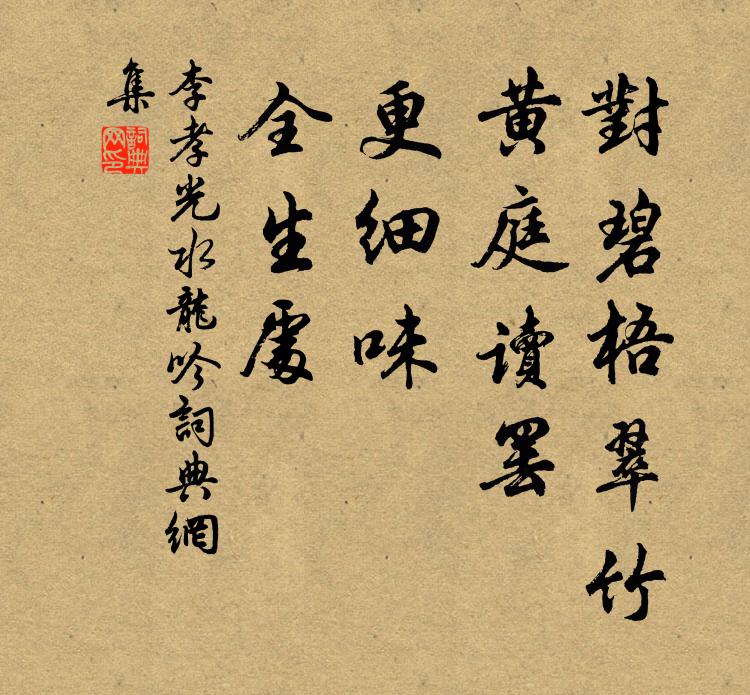 對碧梧翠竹
黃庭讀罷
更細味
全生處
李孝光水龍吟詞典網
集
詞典
网印